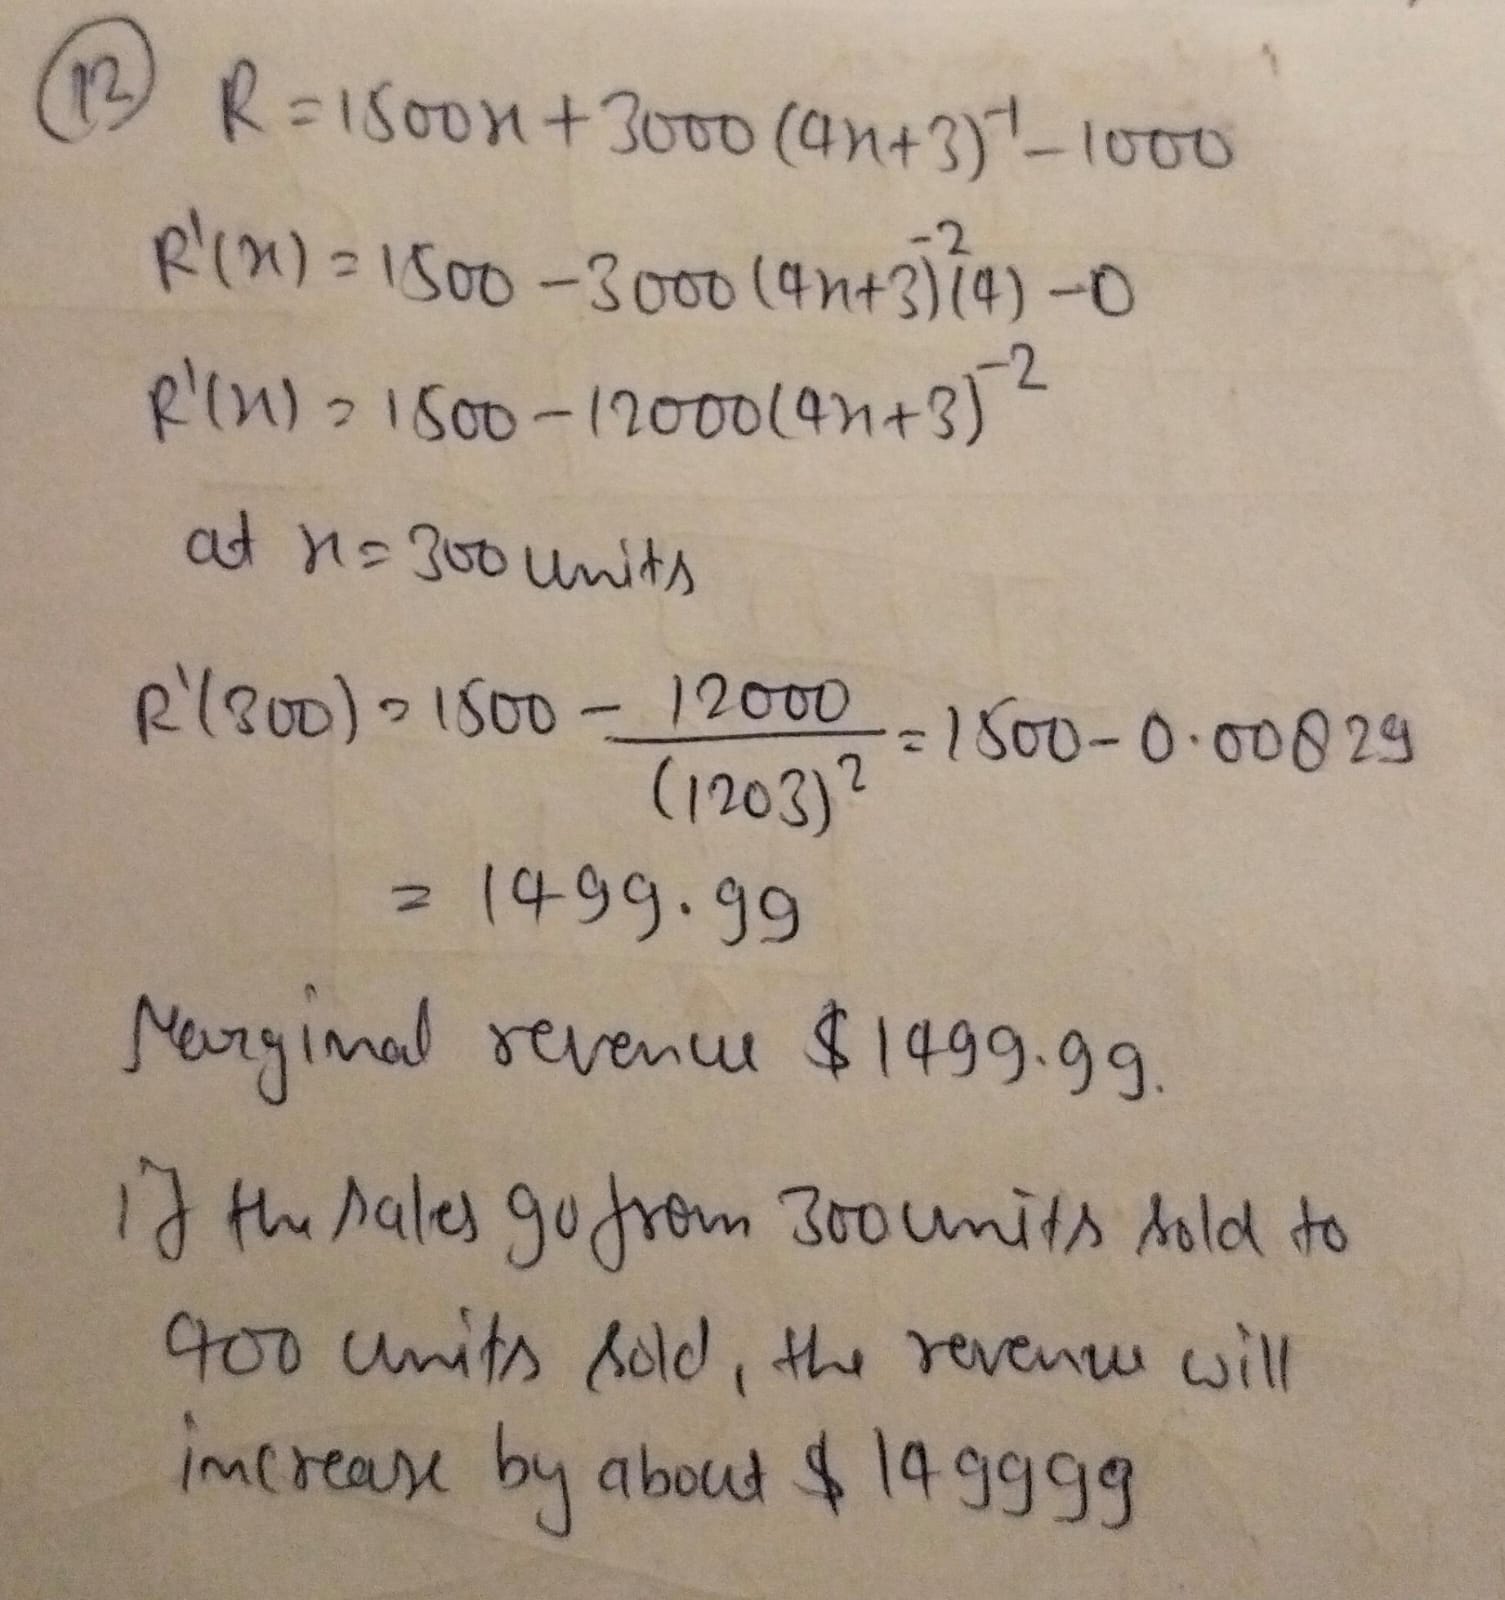 12 R = 1500x + 3000 (4x+3)⁻¹ - 1000
R'(x) = 1500 - 3000 (4x+3)⁻²(4) - 0
R'(x) = 1500 - 12000(4x+3)⁻²
at x = 300 units
R'(300) = 1500 - 12000/(1203)² = 1500 - 0.00829
= 1499.99
Marginal revenue $1499.99.
if the sales go from 300 units sold to
400 units sold, the revenue will
increase by about $149999